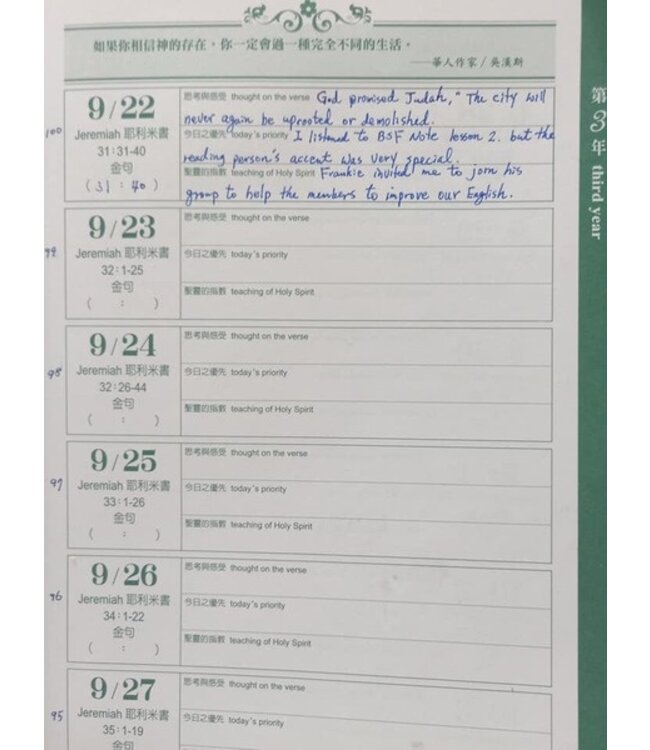 如果你相信神的存在，你一定會過一種完全不同的生活。
——華人作家／吳漢斯
第3年 third year
100
9/22
Jeremiah 耶利米書
31:31-40
金句
( 31 : 40 )
思考與感受 thought on the verse God promised Judah, "The city will
never again be uprooted or demolished.
今日之優先 today's priority I listened to BSF Note lesson 2. but the
reading person's accent was very special.
聖靈的指教 teaching of Holy Spirit Frankie invited me to join his
group to help the members to improve our English.
99
9/23
Jeremiah 耶利米書
32:1-25
金句
( : )
思考與感受 thought on the verse
今日之優先 today's priority
聖靈的指教 teaching of Holy Spirit
98
9/24
Jeremiah 耶利米書
32:26-44
金句
( : )
思考與感受 thought on the verse
今日之優先 today's priority
聖靈的指教 teaching of Holy Spirit
97
9/25
Jeremiah 耶利米書
33:1-26
金句
( : )
思考與感受 thought on the verse
今日之優先 today's priority
聖靈的指教 teaching of Holy Spirit
96
9/26
Jeremiah 耶利米書
34:1-22
金句
( : )
思考與感受 thought on the verse
今日之優先 today's priority
聖靈的指教 teaching of Holy Spirit
95
9/27
Jeremiah 耶利米書
35:1-19
金句
思考與感受 thought on the verse
今日之優先 today's priority